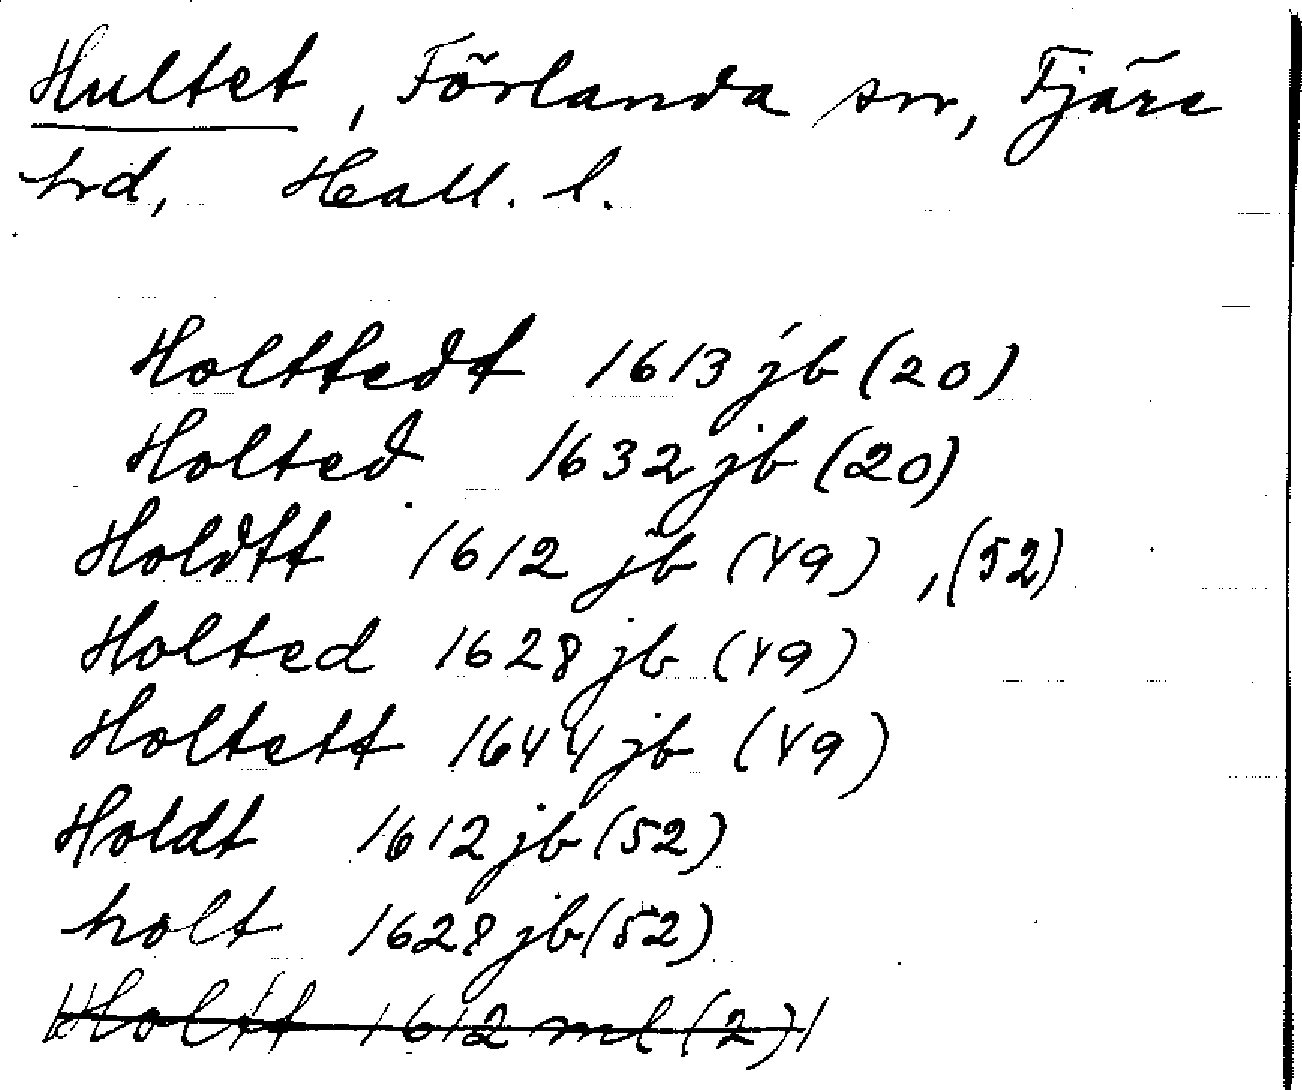 Hultet, Förlanda sn, Fjäre
hrd, Hall. l.
Holttedt 1613 jb (20)
Holted 1632 jb (20)
Holdtt 1612 jb (49), (52)
Holted 1628 jb (49)
Holtett 1644 jb (49)
Holdt 1612 jb (52)
holt 1628 jb (52)
Holtt 1612 ml (2)